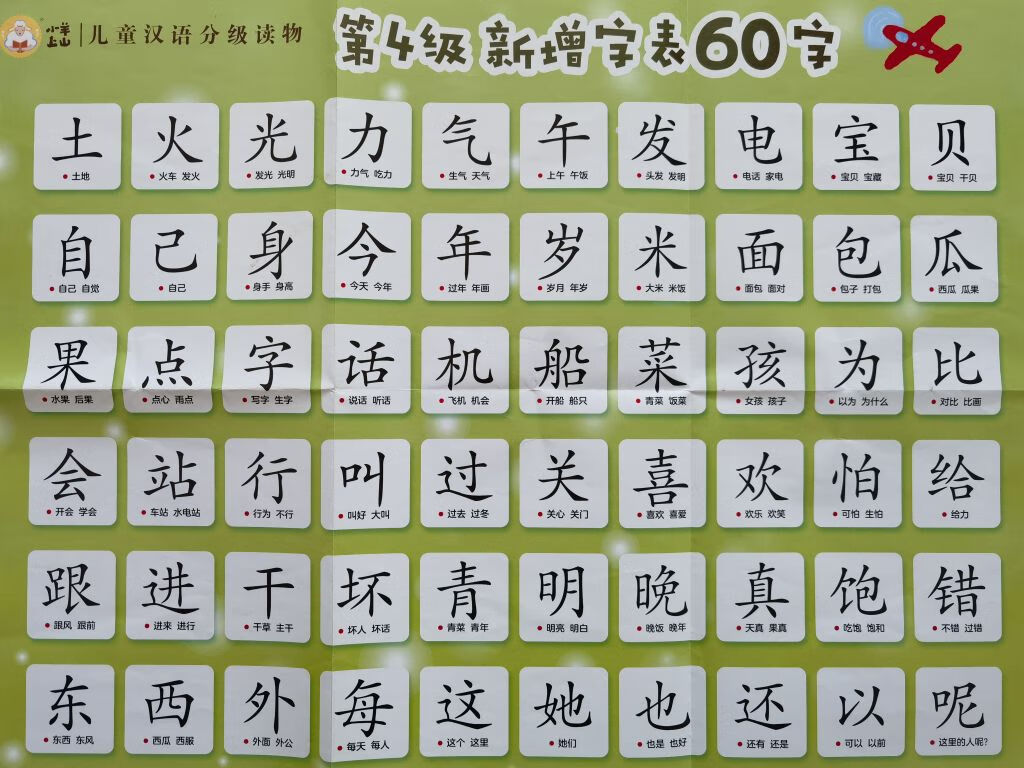 小羊上山 儿童汉语分级读物
第4级 新增字表60字
土 火 光 力 气 午 发 电 宝 贝
土地 火车 发火 发光 光明 力气 吃力 生气 天气 上午 午饭 头发 发明 电话 家电 宝贝 宝藏 宝贝 干贝
自 己 身 今 年 岁 米 面 包 瓜
自己 自觉 自己 身手 身高 今天 今年 过年 年画 岁月 年岁 大米 米饭 面包 面对 包子 打包 西瓜 瓜果
果 点 字 话 机 船 菜 孩 为 比
水果 后果 点心 雨点 写字 生字 说话 听话 飞机 机会 开船 船只 青菜 饭菜 女孩 孩子 以为 为什么 对比 比画
会 站 行 叫 过 关 喜 欢 怕 给
开会 学会 车站 水电站 行为 不行 叫好 大叫 过去 过冬 关心 关门 喜欢 喜爱 欢乐 欢笑 可怕 生怕 给力
跟 进 干 坏 青 明 晚 真 饱 错
跟风 跟前 进来 进行 干草 主干 坏人 坏话 青菜 青年 明亮 明白 晚饭 晚年 天真 果真 吃饱 饱和 不错 过错
东 西 外 每 这 她 也 还 以 呢
东西 东风 西瓜 西服 外面 外公 每天 每人 这个 这里 她们 也是 也好 还有 还是 可以 以前 这里的人呢?